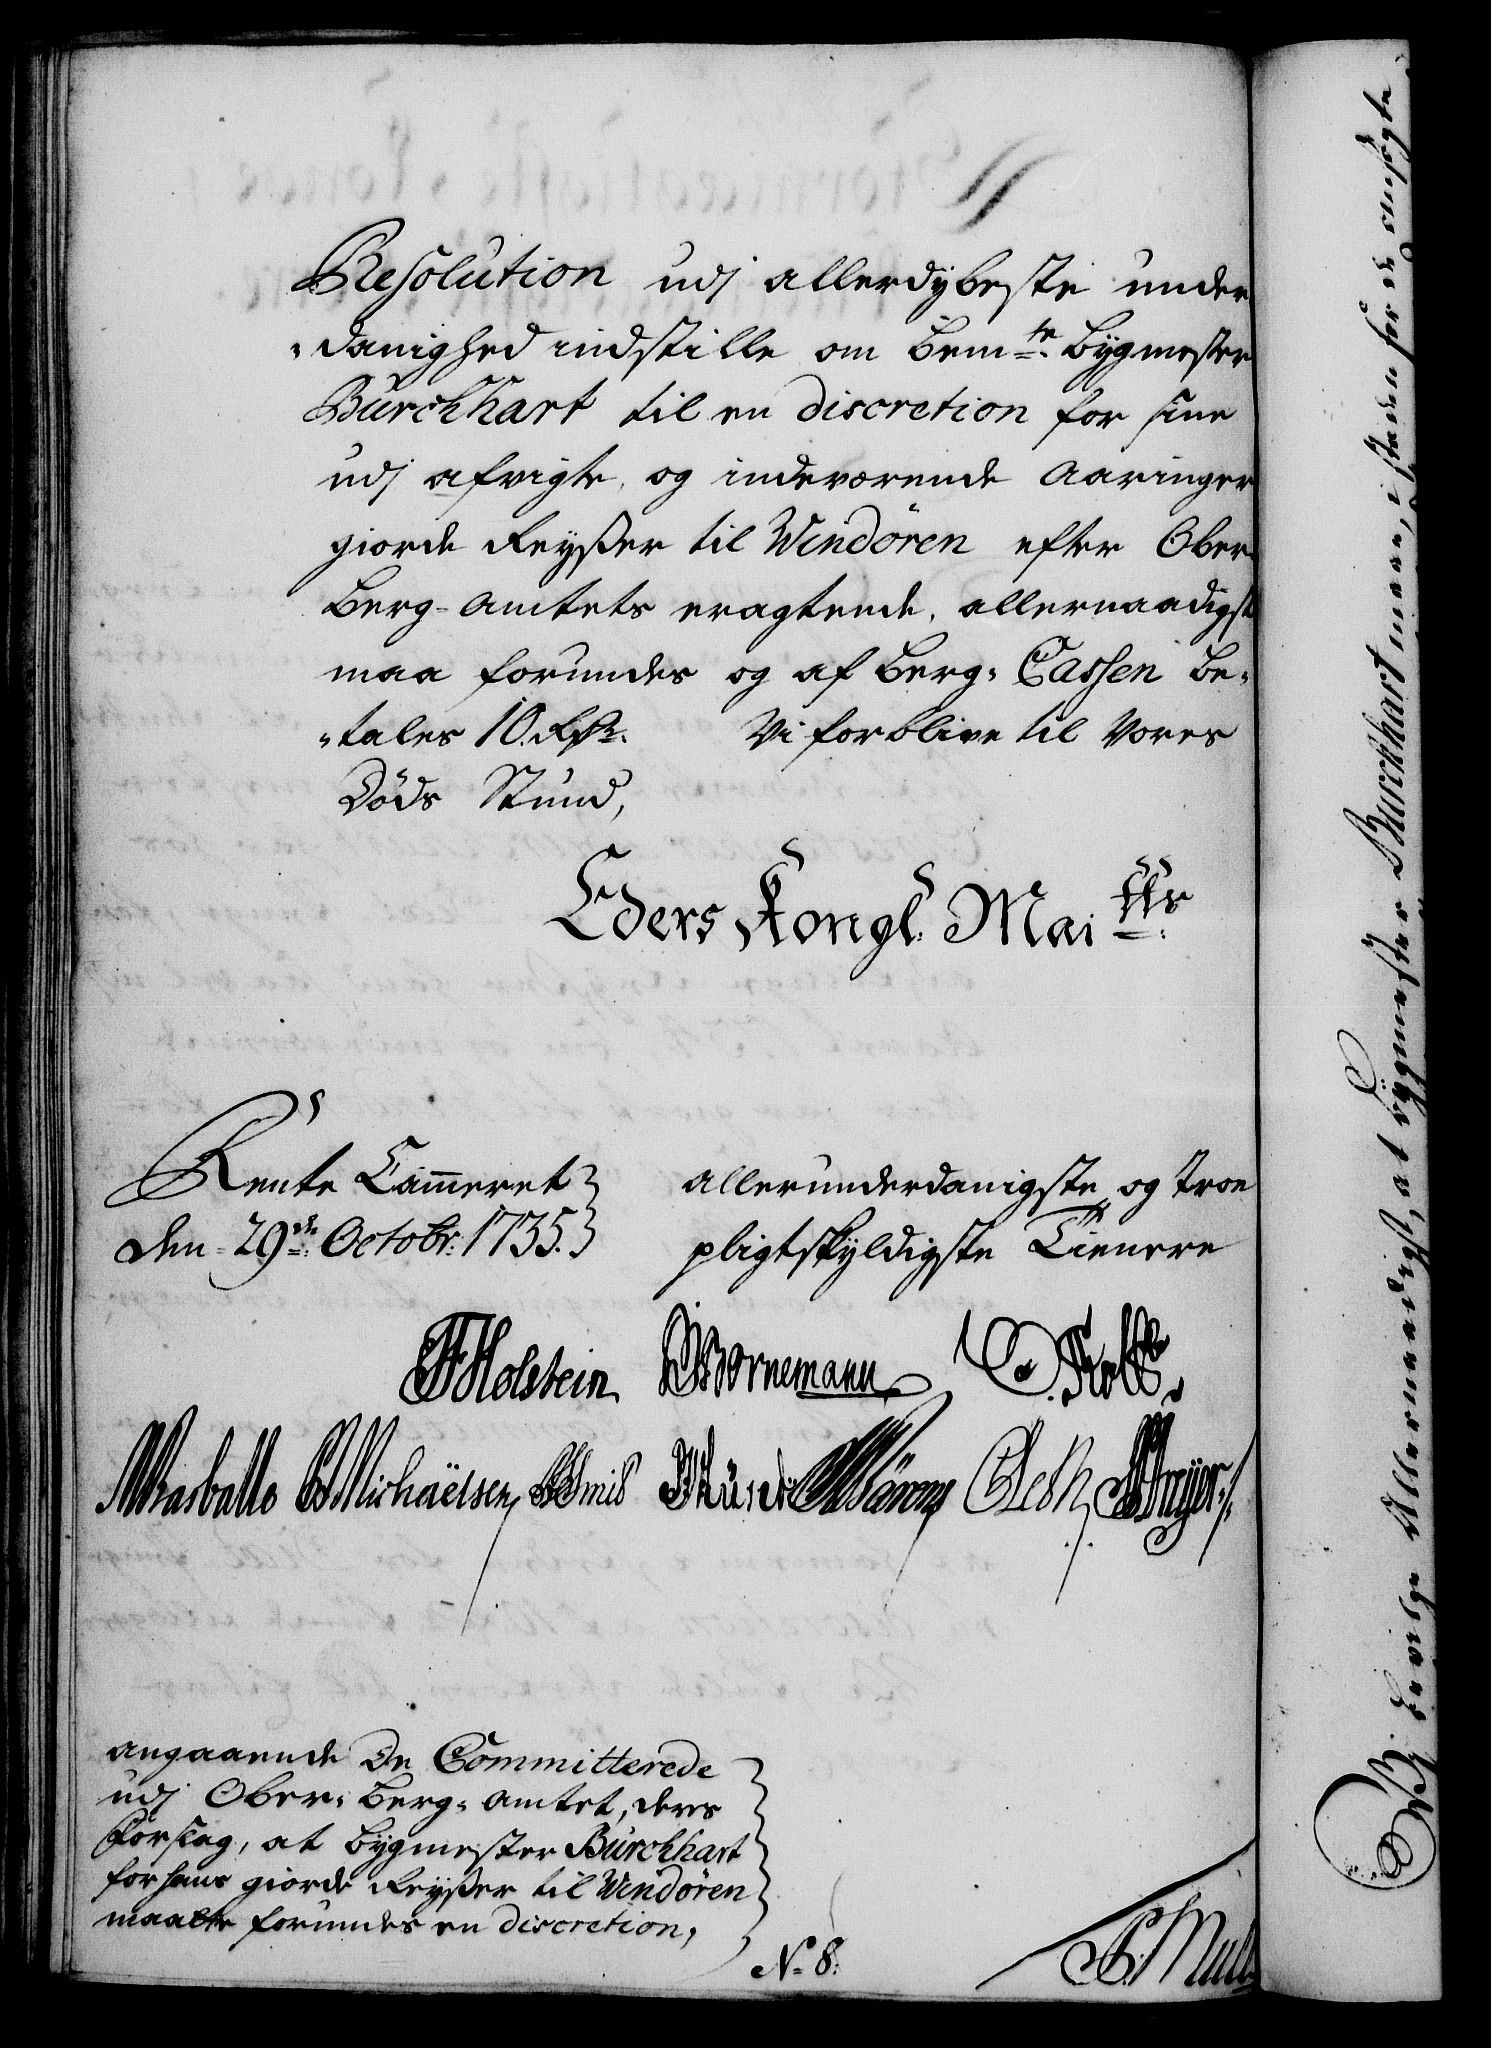 Resolution udj allerdybeste under
-danighed indstille om bem:te Bygmester
Burchhart til en discretion for sine
udj afvigte, og indeværende Aaringer
giorde Reyßer til Windören efter Ober-
Berg-Amtets eragtende, allernaadigst
maa forundes og af Berg-Cassen be-
-tales 10. Rdr. Vi forblive til Vores
Døds Stund,
Eders Kongl. Mai:tts
Rente Cammeret
den 29de Octobr: 1735.
allerunderdanigste og troe
pligtskyldigste Tienere
Holstein Bornemann
Basballe Michaëlsen
angaaende De Committerede
udj Ober-Berg-Amtet, deres
Forslag, at Bygmester Burchhart
for hans giorde Reyßer til Windören
maatte forundes en discretion,
No 8.
Vj bevilge Allernaadigst, at Bygmester Burckhart maae, i steden for de ansøgte